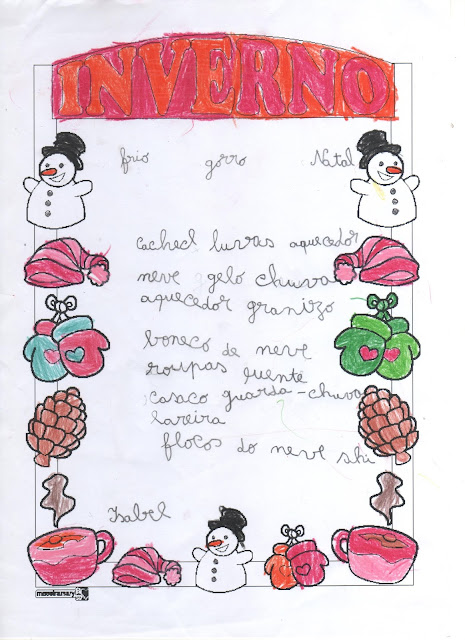 INVERNO
frio gorro Natal
cachecl luvas aquecedor
neve gelo chuva
aquecedor granizo
boneco de neve
roupas
casaco guarda-chuva
lareira
flocos do neve shi
Isabel